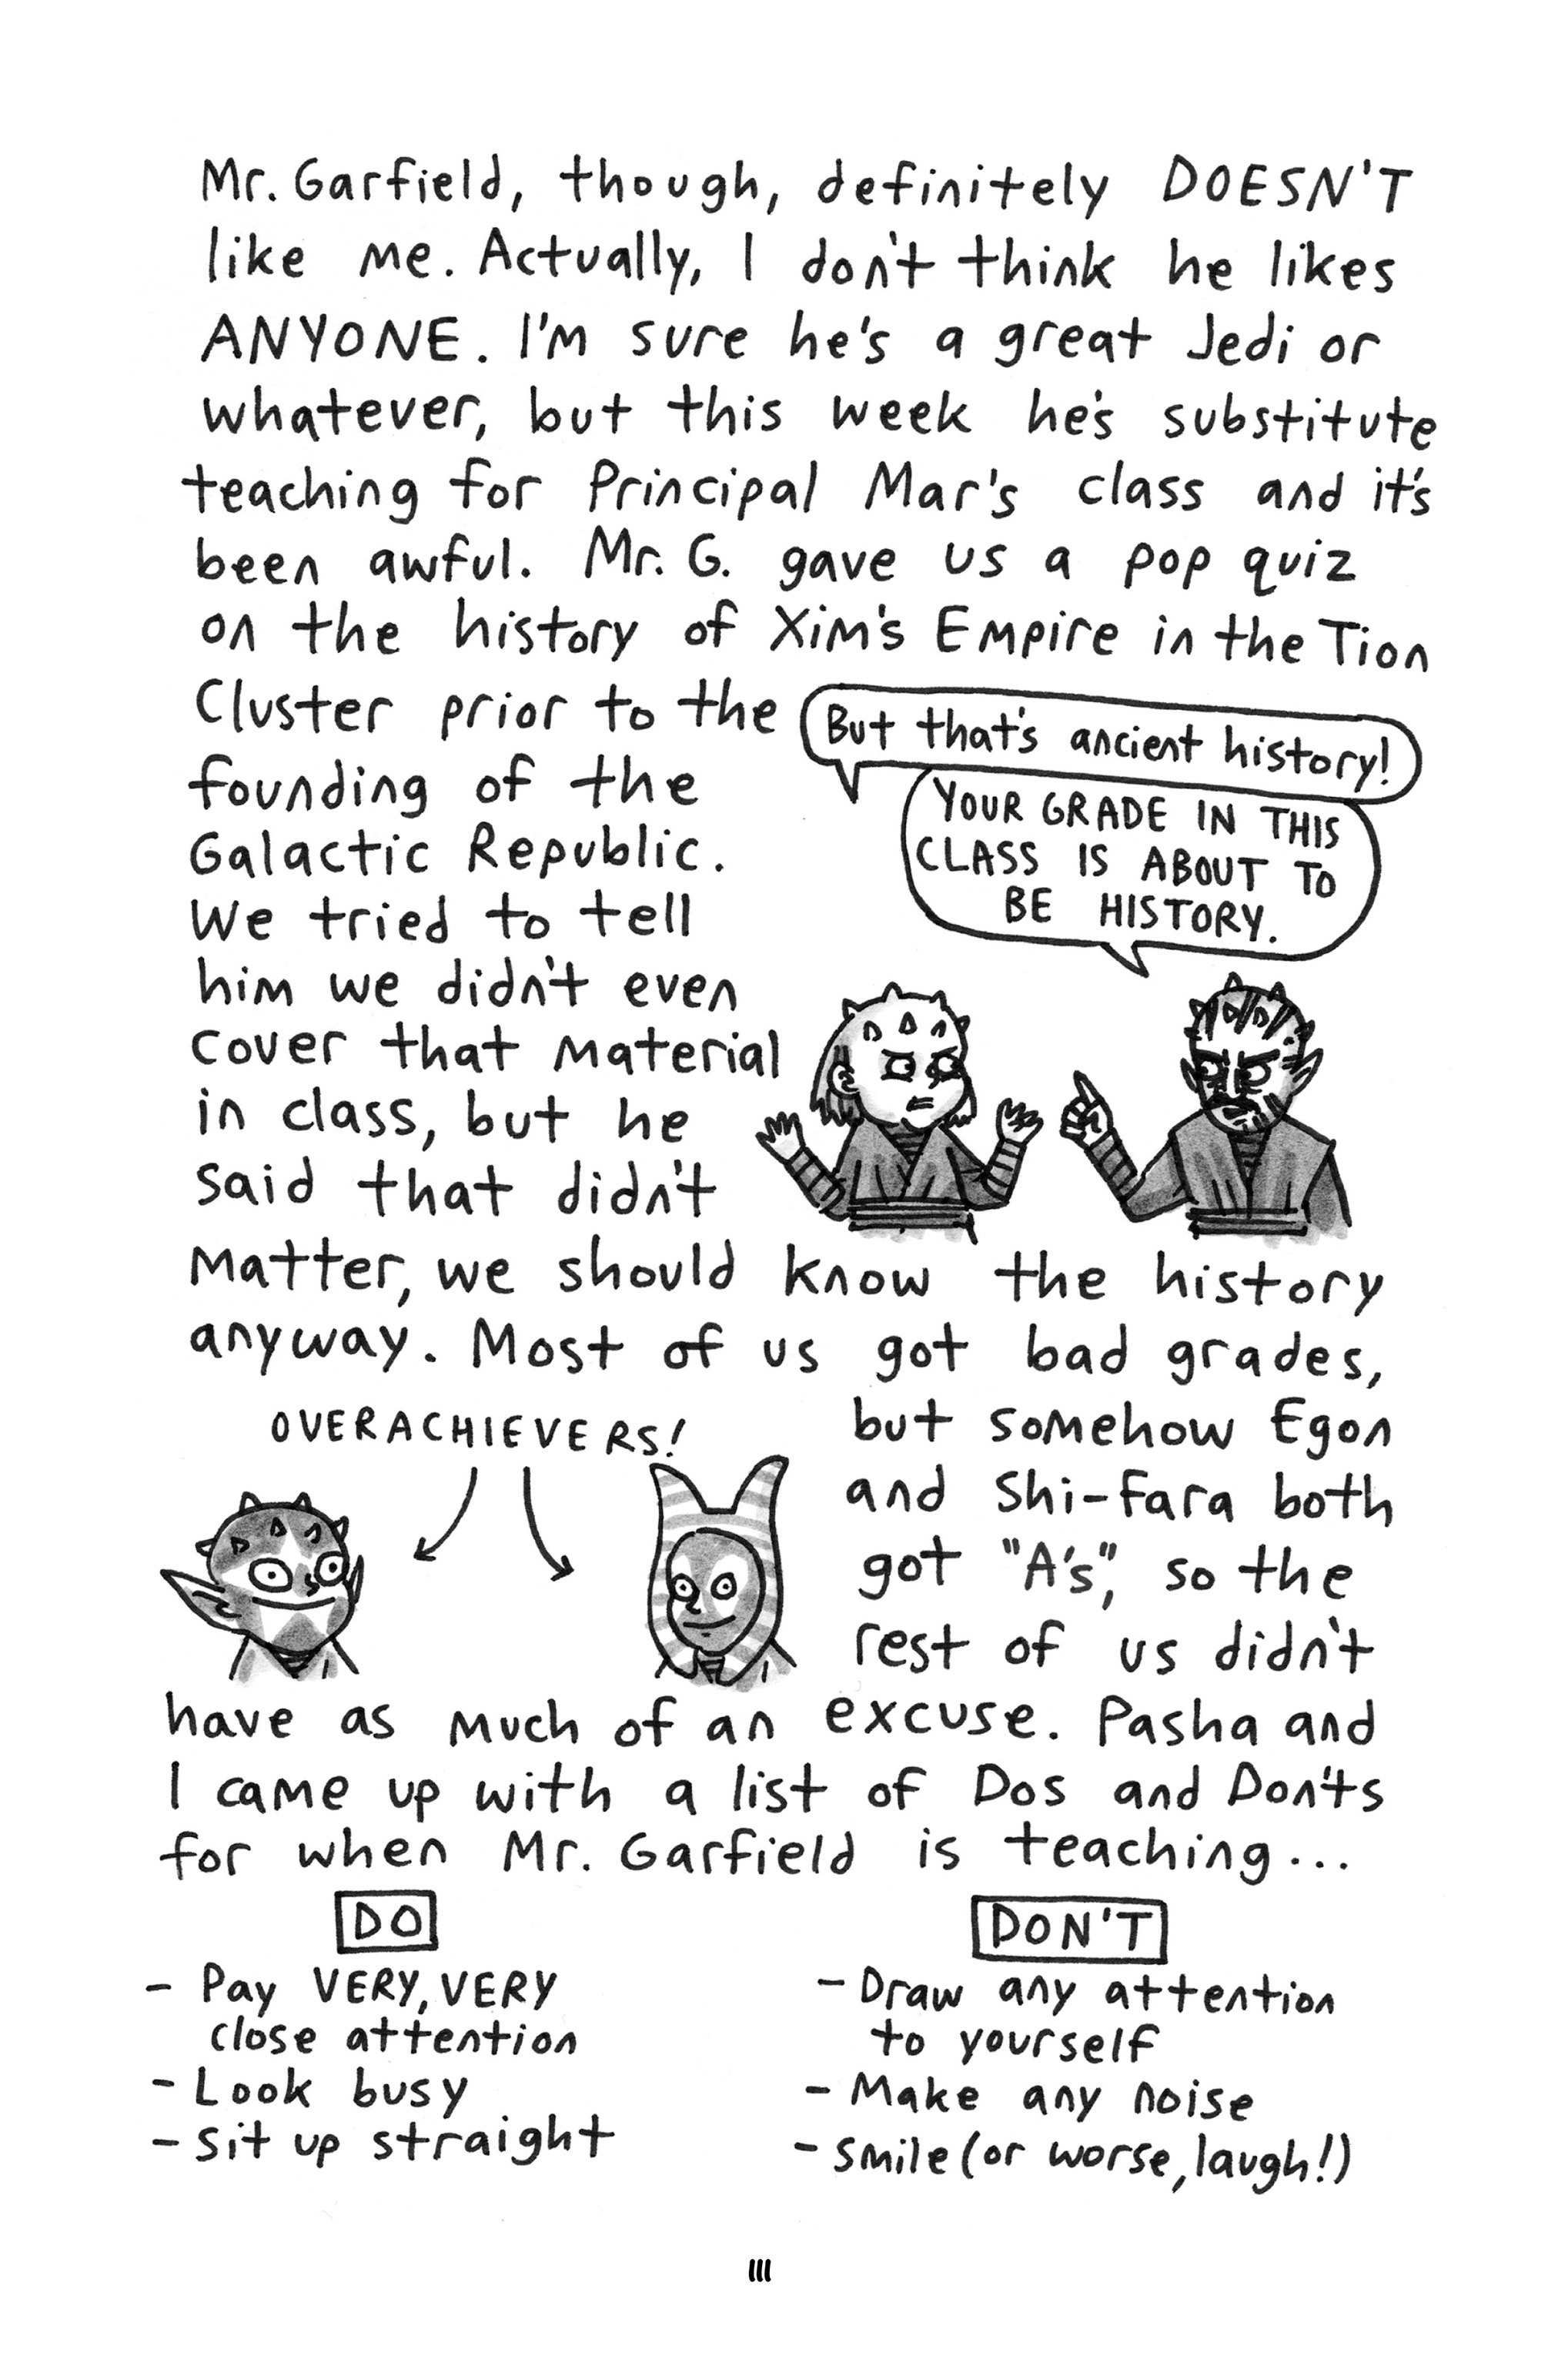 Mr. Garfield, though, definitely DOESN'T
like me. Actually, I don't think he likes
ANYONE. I'm sure he's a great Jedi or
whatever, but this week he's substitute
teaching for Principal Mar's class and it's
been awful. Mr. G. gave us a pop quiz
on the history of Xim's Empire in the Tion
Cluster prior to the
founding of the
Galactic Republic.
We tried to tell
him we didn't even
cover that material
in class, but he
said that didn't
But that's ancient history!
YOUR GRADE IN THIS
CLASS IS ABOUT TO
BE HISTORY.
matter, we should know the history
anyway. Most of us got bad grades,
OVERACHIEVERS!
but somehow Egon
and Shi-Fara both
got "A's", so the
rest of us didn't
have as much of an excuse. Pasha and
I came up with a list of Dos and Don'ts
for when Mr. Garfield is teaching...
DO
- Pay VERY, VERY
close attention
- Look busy
- Sit up straight
DON'T
- Draw any attention
to yourself
- Make any noise
- Smile (or worse, laugh!)
111